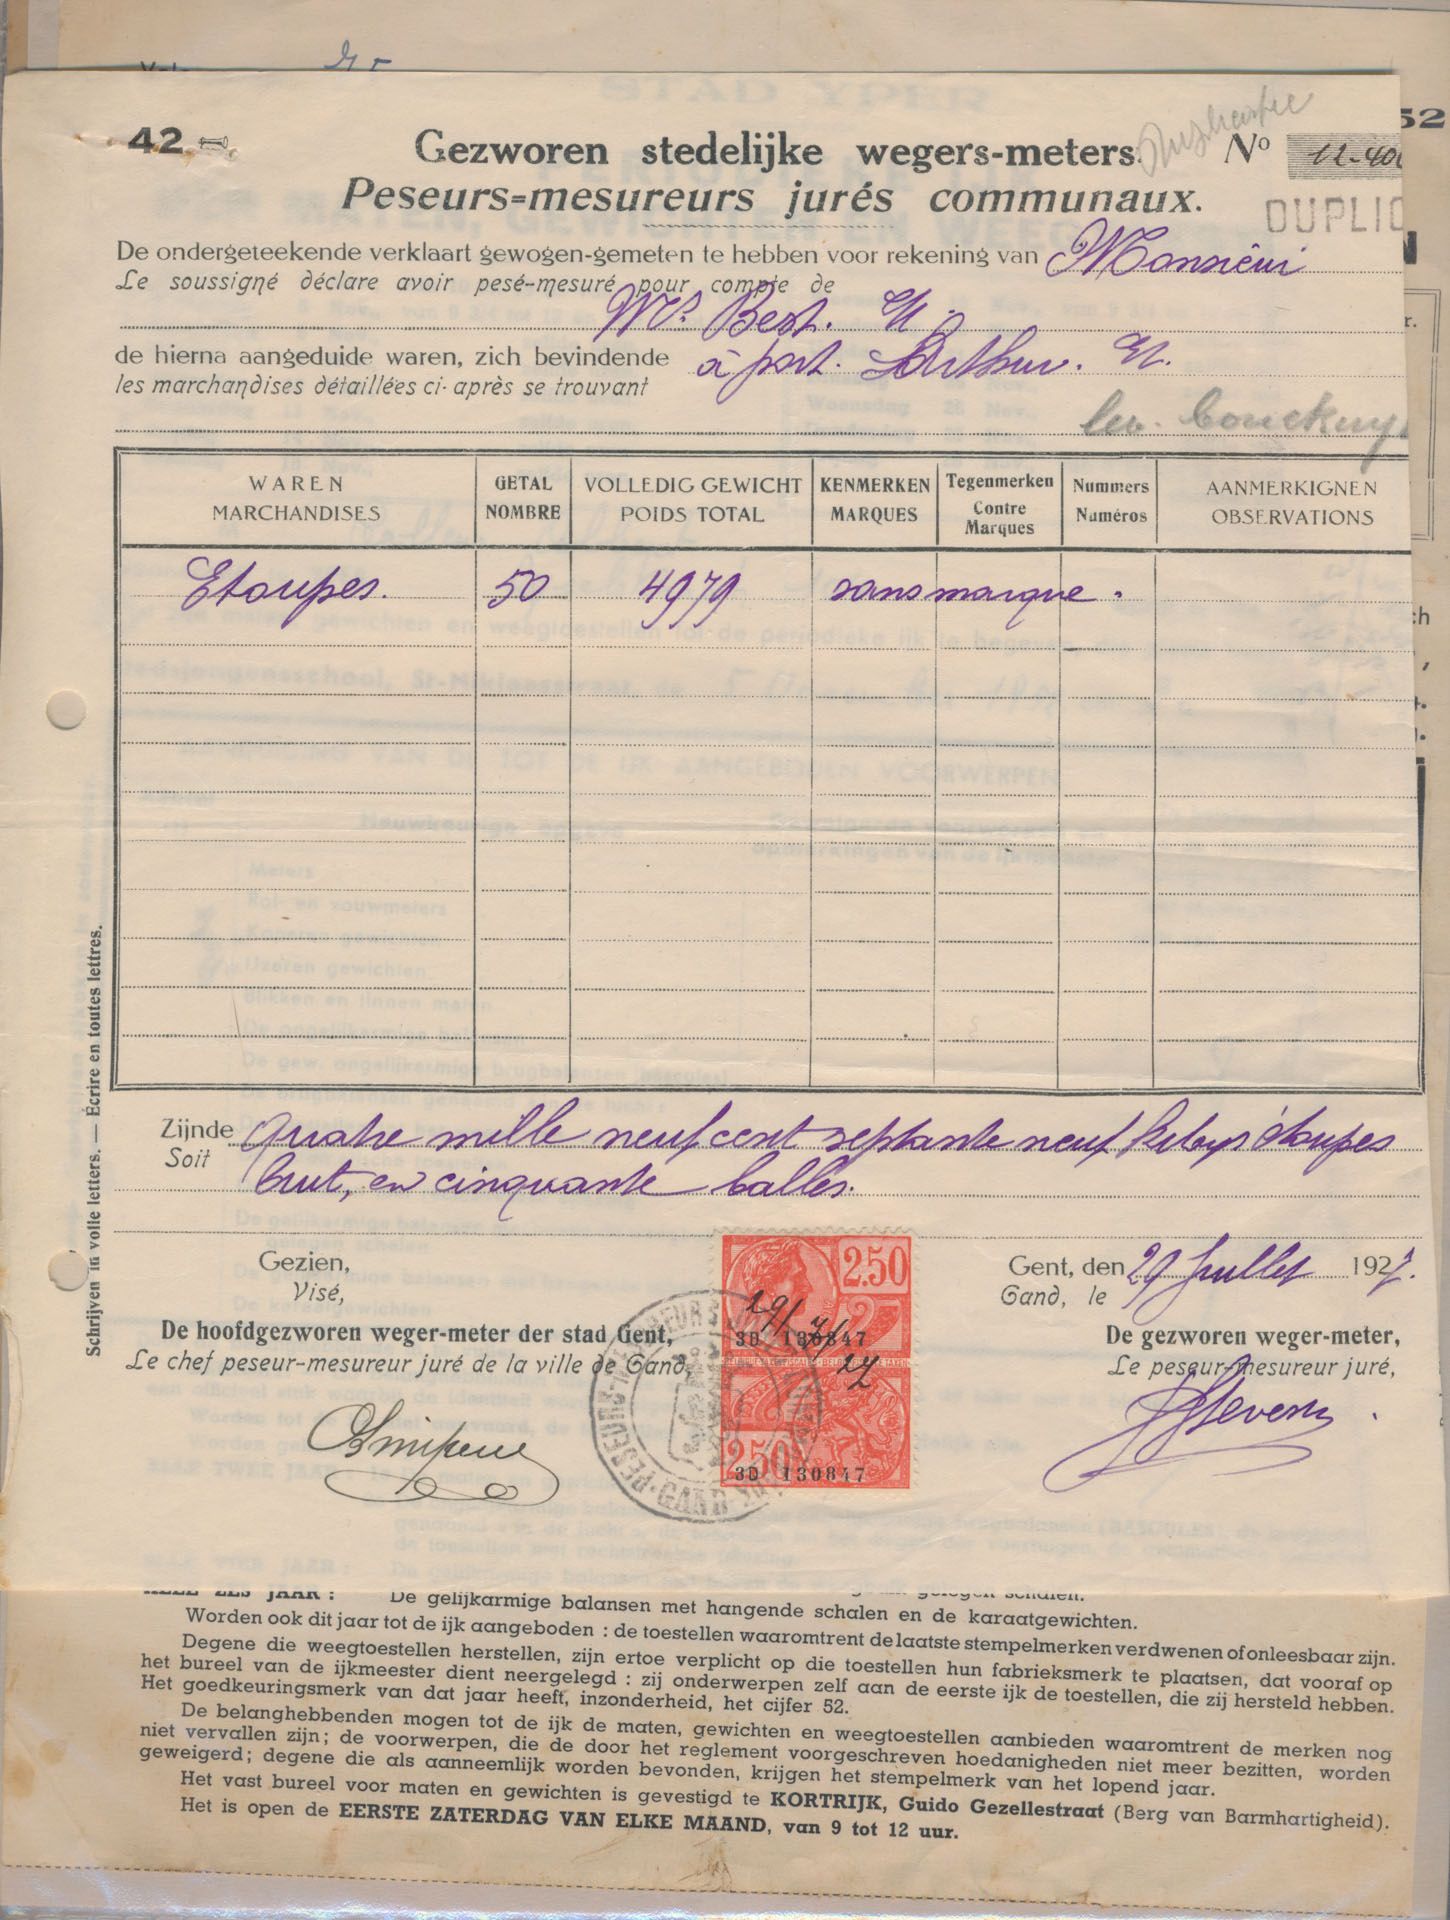 42
52
Gezworen stedelijke wegers-meters.
Nº 12-40
Peseurs=mesureurs jurés communaux.
DUPLIC
De ondergeteekende verklaart gewogen-gemeten te hebben voor rekening van Monsieur
Le soussigné déclare avoir pesé-mesuré pour compte de
Best.
de hierna aangeduide waren, zich bevindende à port. Arthur.
les marchandises détaillées ci-après se trouvant
WAREN GETAL VOLLEDIG GEWICHT KENMERKEN Tegenmerken Nummers AANMERKIGNEN
MARCHANDISES NOMBRE POIDS TOTAL MARQUES Contre Marques Numéros OBSERVATIONS
Etoupes. 50 4979 sans marque.
Zijnde Quatre mille neuf cent septante neuf étoupes
Soit
brut, en cinquante balles.
Schrijven in volle letters. — Écrire en toutes lettres.
Gezien,
Visé,
De hoofdgezworen weger-meter der stad Gent,
Le chef peseur-mesureur juré de la ville de Gand,
2.50
29/7/27
3D 130847
2.50
3D 130847
GAND
Gent, den 29 Juillet 1927.
Gand, le
De gezworen weger-meter,
Le peseur-mesureur juré,
Stevens
JAAR : De gelijkarmige balansen met hangende schalen en de karaatgewichten.
Worden ook dit jaar tot de ijk aangeboden : de toestellen waaromtrent de laatste stempelmerken verdwenen of onleesbaar zijn.
Degene die weegtoestellen herstellen, zijn ertoe verplicht op die toestellen hun fabrieksmerk te plaatsen, dat vooraf op
het bureel van de ijkmeester dient neergelegd : zij onderwerpen zelf aan de eerste ijk de toestellen, die zij hersteld hebben.
Het goedkeuringsmerk van dat jaar heeft, inzonderheid, het cijfer 52.
De belanghebbenden mogen tot de ijk de maten, gewichten en weegtoestellen aanbieden waaromtrent de merken nog
niet vervallen zijn; de voorwerpen, die de door het reglement voorgeschreven hoedanigheden niet meer bezitten, worden
geweigerd; degene die als aanneemlijk worden bevonden, krijgen het stempelmerk van het lopend jaar.
Het vast bureel voor maten en gewichten is gevestigd te KORTRIJK, Guido Gezellestraat (Berg van Barmhartigheid).
Het is open de EERSTE ZATERDAG VAN ELKE MAAND, van 9 tot 12 uur.